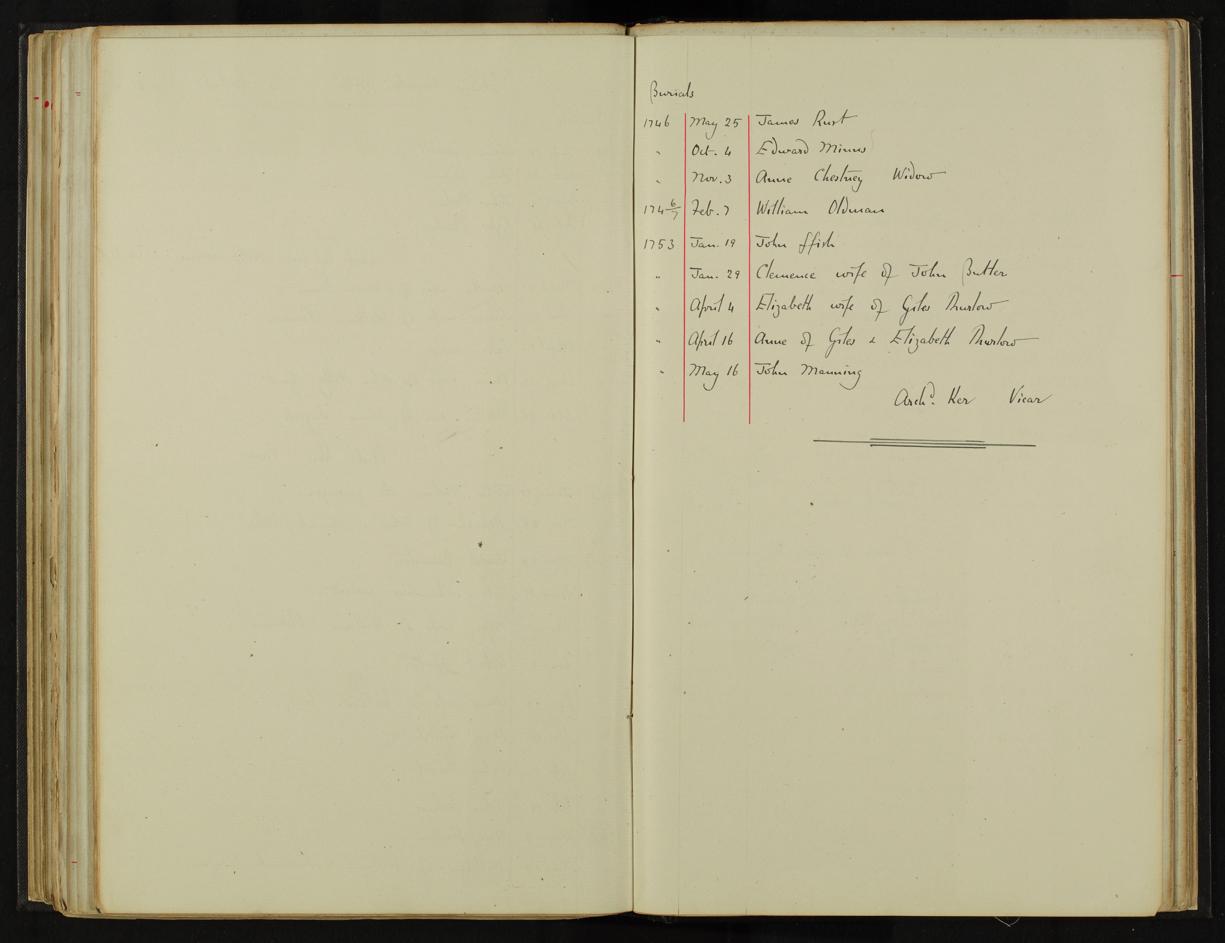 Burials
1746 May 25 James Rust
" Oct. 4 Edward Minns
" Nov. 3 Anne Chestney Widow
174 6/7 Feb. 7 William Oldman
1753 Jan. 19 John ffish
" Jan. 29 Clemence wife of John Butter
" April 4 Elizabeth wife of Giles Thurlow
" April 16 Anne of Giles & Elizabeth Thurlow
" May 16 John Manning
Archd. Ker Vicar